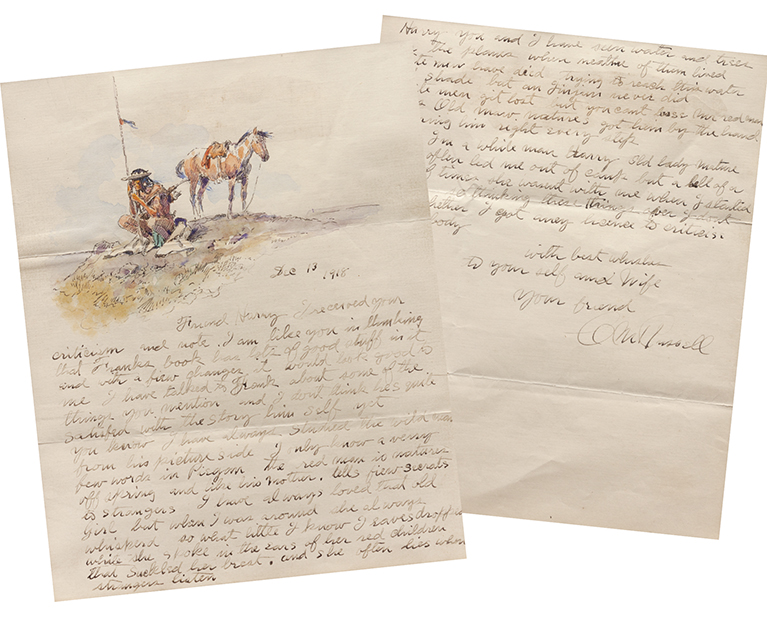 Dec 13 1918
Friend Harry I received your
criticism and note. I am like you in thinking
that Franks book has lots of good stuff in it
and with a fiew changes it would look good to
me I have talked to Frank about some of the
things you mention and I dont think hes quite
satisfied with the story him self yet
you know I have always studied the wild man
from his picture side I only know a verry
few words in Piegan the red man is natures
off spring and like his mother. tells fiew secrets
to strangers I have always loved that old
girl but when I was around she always
whisperd so what little I know I eavesdropt
while she spoke in the ears of her red children
that suckled her breat. and she often lies when
strangers listen
Harry you and I have seen water and trees
the planes when neather of them lived
men have died trying to reach this water
shade but an Injun never did
men git lost but you cant lose the red man
Old Maw nature's got him by the hand
him right every step
I'm a white man Harry old lady nature
often led me out of but a hell of a
times she wasent with me when I started
thinking these things over I dont
I got any
body
with best wishes
to your self and Wife
your friend
CM Russell